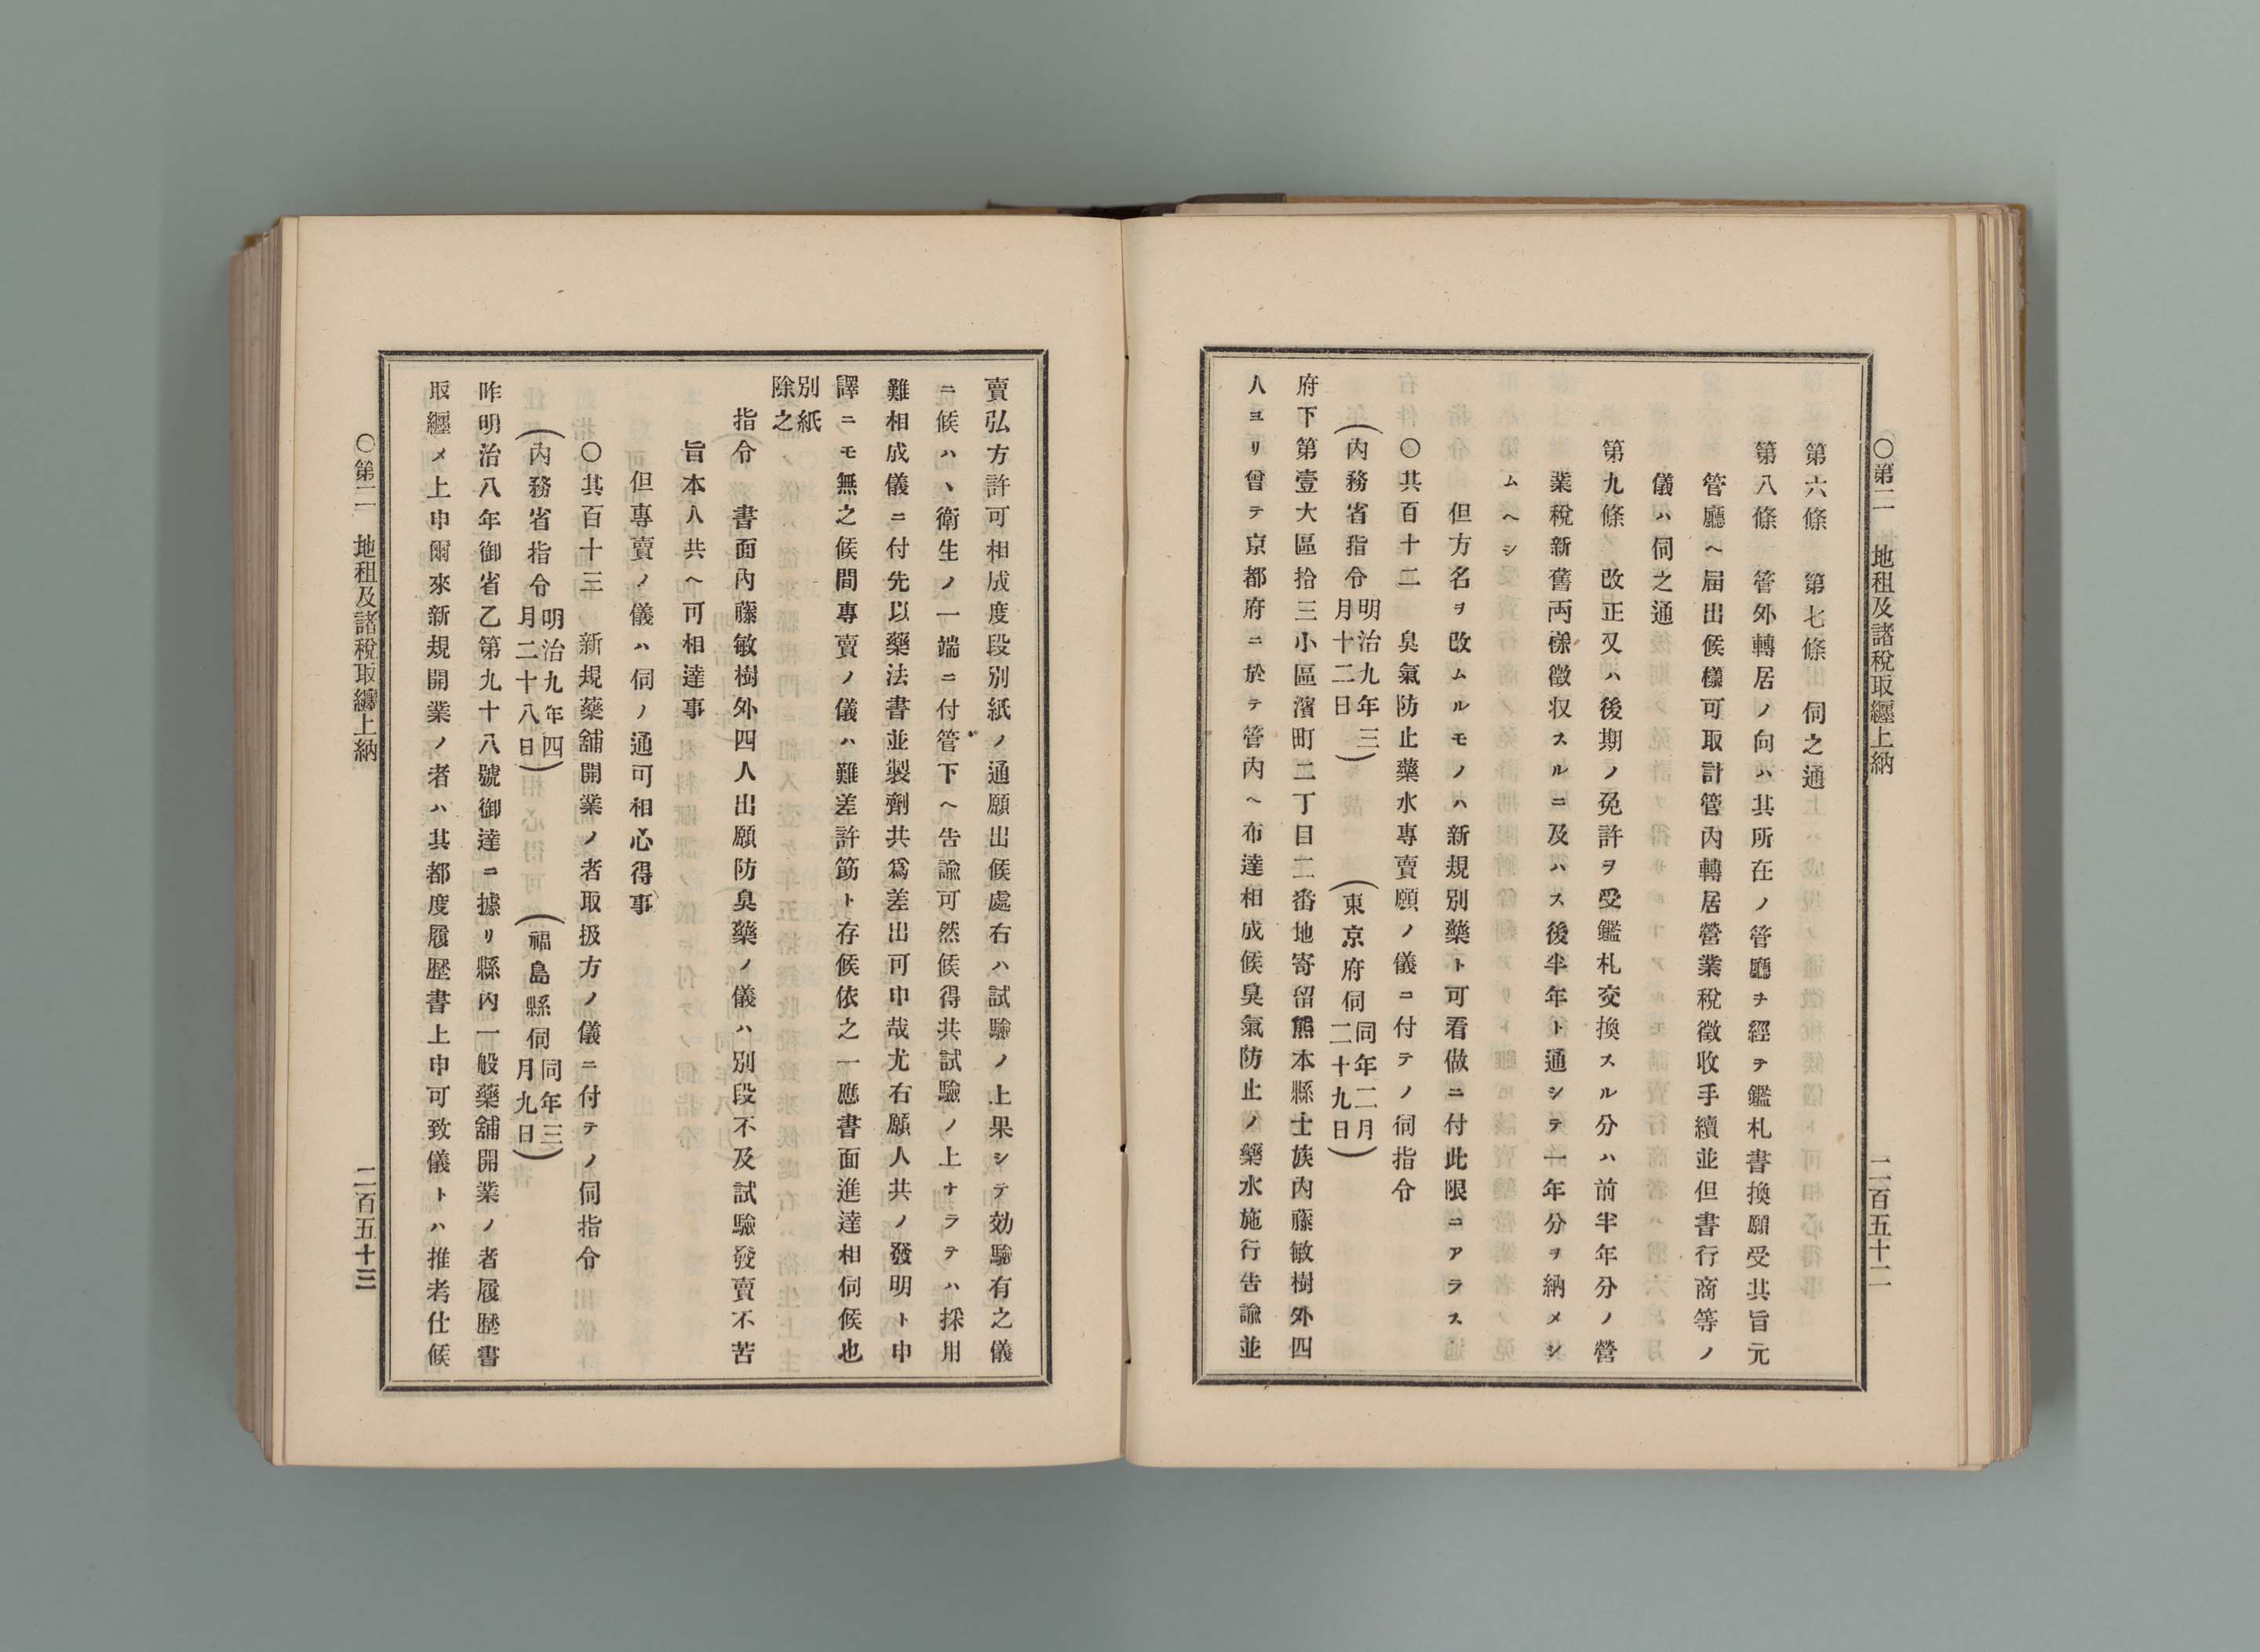 〇第二　地租及諸稅取纒上納　二百五十二
第六條　第七條　伺之通
第八條　管外轉居ノ向ハ其所在ノ管廳ヲ經テ鑑札書換願受其旨元
管廳ヘ屆出候樣可取計管內轉居營業稅徵收手續並但書行商等ノ
儀ハ伺之通
第九條　改正又ハ後期ノ免許ヲ受鑑札交換スル分ハ前半年分ノ營
業稅新舊兩樣徵収スルニ及ハス後半年ト通シテ一年分ヲ納メシ
ムヘシ
但方名ヲ改ムルモノハ新規別藥ト可看做ニ付此限ニアラス
〇其百十二　臭氣防止藥水專賣願ノ儀ニ付テノ伺指令
（內務省指令明治九年三月十二日）　（東京府伺同年二月二十九日）
府下第壹大區拾三小區濱町二丁目二番地寄留熊本縣士族內藤敏樹外四
人ヨリ曾テ京都府ニ於テ管內ヘ布達相成候臭氣防止ノ藥水施行告諭並
賣弘方許可相成度段別紙ノ通願出候處右ハ試驗ノ上果シテ効驗有之儀
ニ候ハヽ衛生ノ一端ニ付管下ヘ告諭可然候得共試驗ノ上ナラテハ採用
難相成儀ニ付先以藥法書並製劑共爲差出可申哉尤右願人共ノ發明ト申
譯ニモ無之候間專賣ノ儀ハ難差許筋ト存候依之一應書面進達相伺候也
別紙除之
指令　書面內藤敏樹外四人出願防臭藥ノ儀ハ別段不及試驗發賣不苦
旨本人共ヘ可相達事
但專賣ノ儀ハ伺ノ通可相心得事
〇其百十三　新規藥舖開業ノ者取扱方ノ儀ニ付テノ伺指令
（內務省指令明治九年四月二十八日）　（福島縣伺同年三月九日）
昨明治八年御省乙第九十八號御達ニ據リ縣內一般藥舖開業ノ者履歷書
取纒メ上申爾來新規開業ノ者ハ其都度履歷書上申可致儀トハ推考仕候
〇第二　地租及諸稅取纒上納　二百五十三